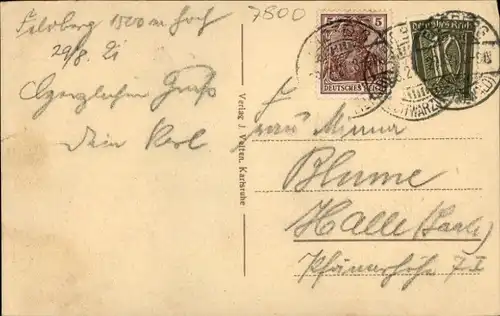 Feldberg 1500 m hoch
29/8. 21
Herzlichen Gruß
Dein Karl
7800
5 5
DEUTSCHES REICH
Deutsches Reich
10
Verlag J. Velten, Karlsruhe
Frau Minna
Blume
Halle (Saale)
Pfännerhöhe 7 I